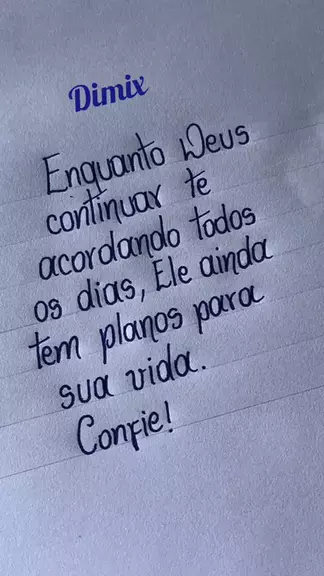 Dimix
Enquanto Deus
continuar te
acordando todos
os dias, Ele ainda
tem planos para
sua vida.
Confie!